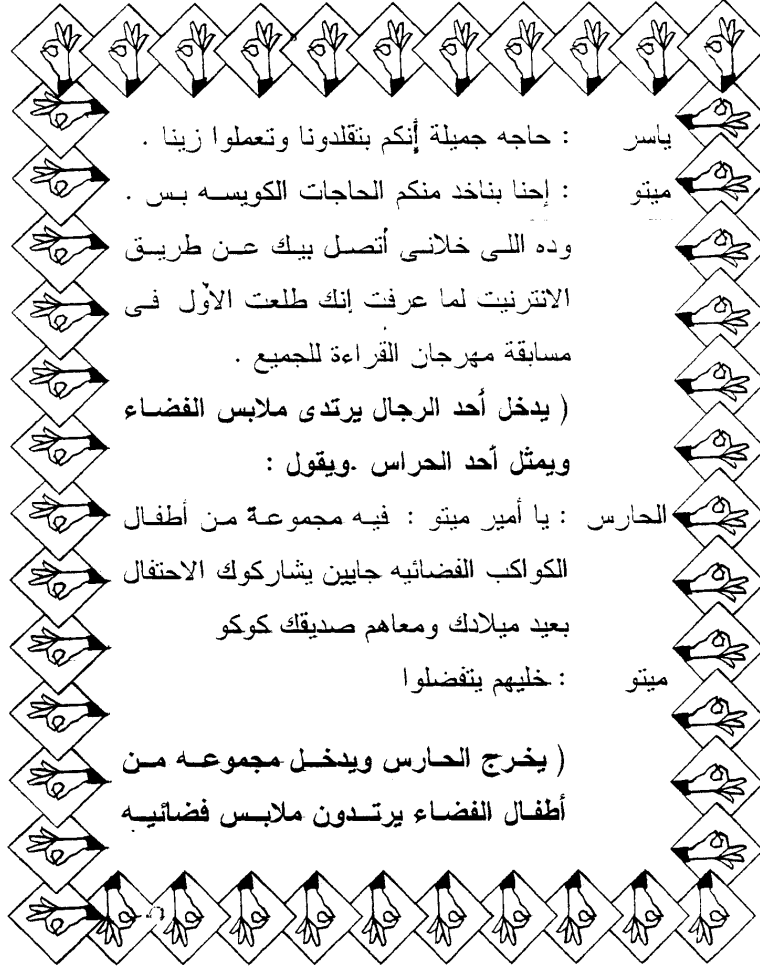 ياسر : حاجه جميلة إنكم بتقلدونا وتعملوا زينا .
ميتو : إحنا بناخد منكم الحاجات الكويسه بس .
وده اللى خلانى أتصل بيك عن طريق
الانترنيت لما عرفت إنك طلعت الأول فى
مسابقة مهرجان القراءة للجميع .
( يدخل أحد الرجال يرتدى ملابس الفضاء
ويمثل أحد الحراس .ويقول :
الحارس : يا أمير ميتو : فيه مجموعة من أطفال
الكواكب الفضائيه جايين يشاركوك الاحتفال
بعيد ميلادك ومعاهم صديقك كوكو
ميتو : خليهم يتفضلوا
( يخرج الحارس ويدخل مجموعه من
أطفال الفضاء يرتدون ملابس فضائيه